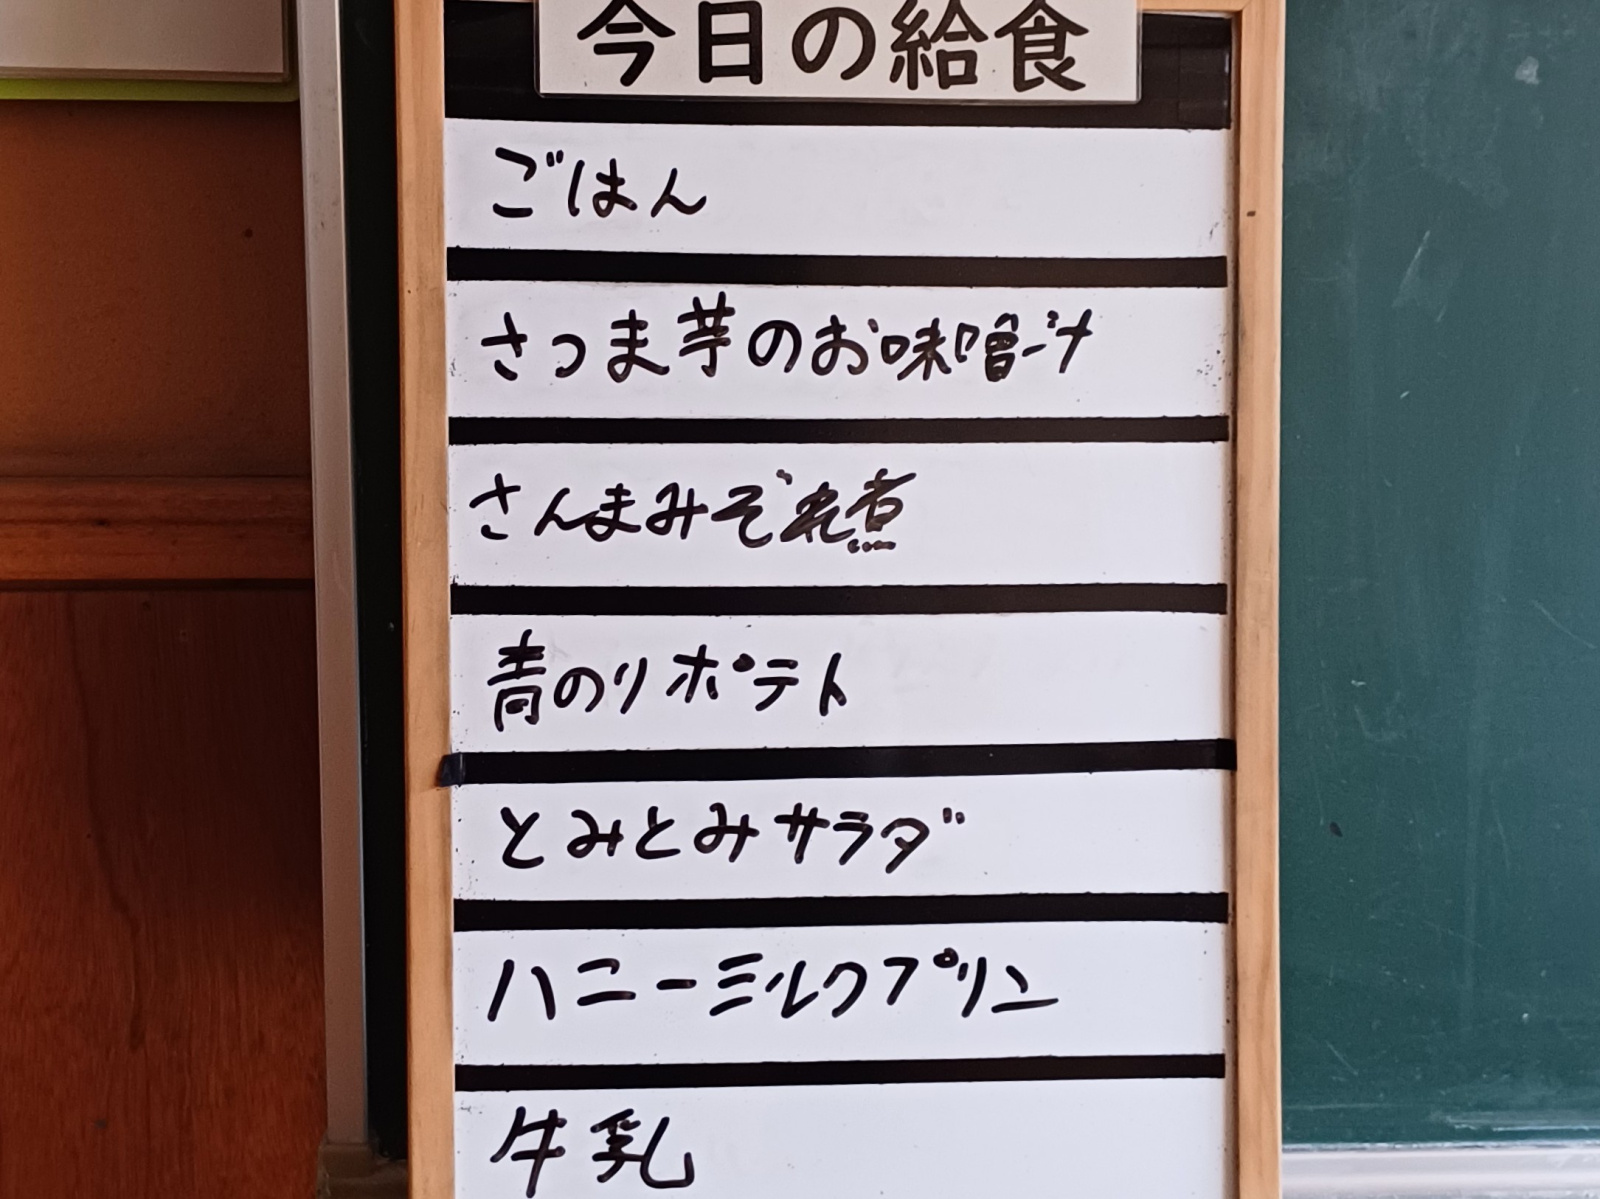 今日の給食
ごはん
さつま芋のお味噌汁
さんまみぞれ煮
青のりポテト
とみとみサラダ
ハニーミルクプリン
牛乳